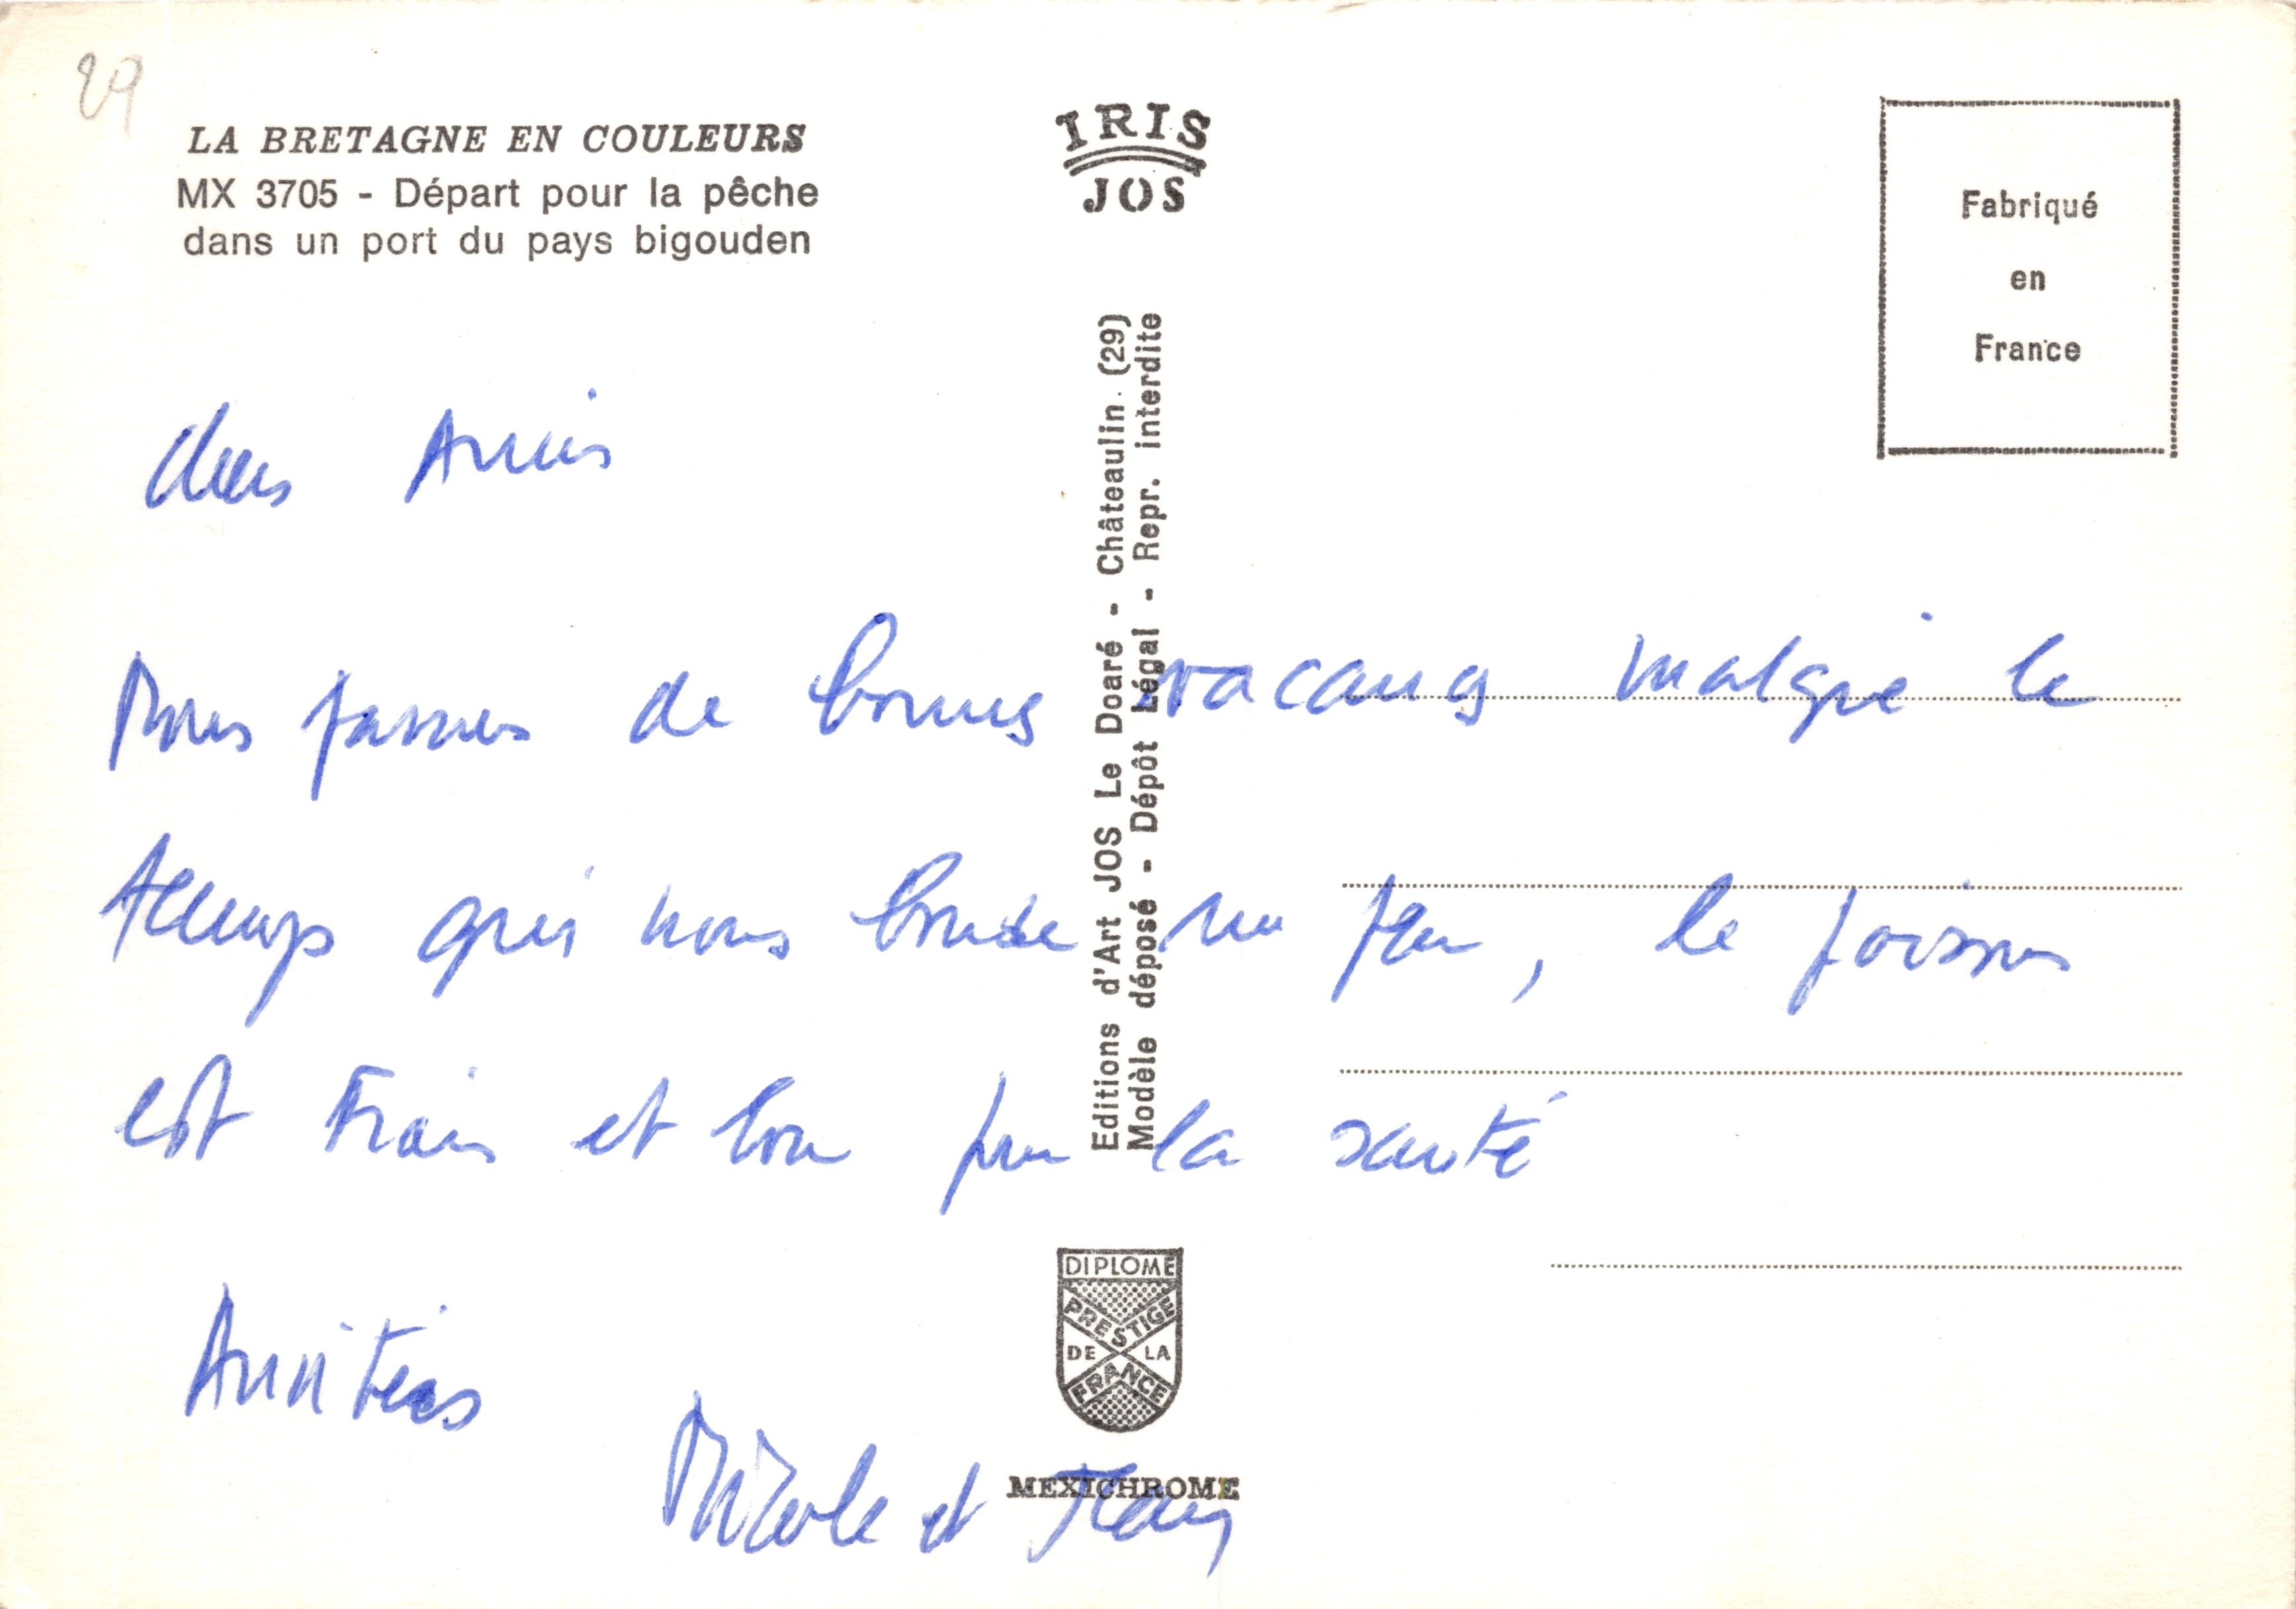 29
LA BRETAGNE EN COULEURS
MX 3705 - Départ pour la pêche
dans un port du pays bigouden
IRIS
JOS
Fabriqué
en
France
Editions d'Art JOS Le Doaré - Châteaulin (29)
Modèle déposé - Dépôt Légal - Repr. interdite
Chers Amis
Nous passons de bonnes vacances malgré le
temps qui nous boude un peu, le poisson
est Frais et bon pour la santé
Amitiés
Nicole et
DIPLOME
PRESTIGE
DE LA
FRANCE
MEXICHROME